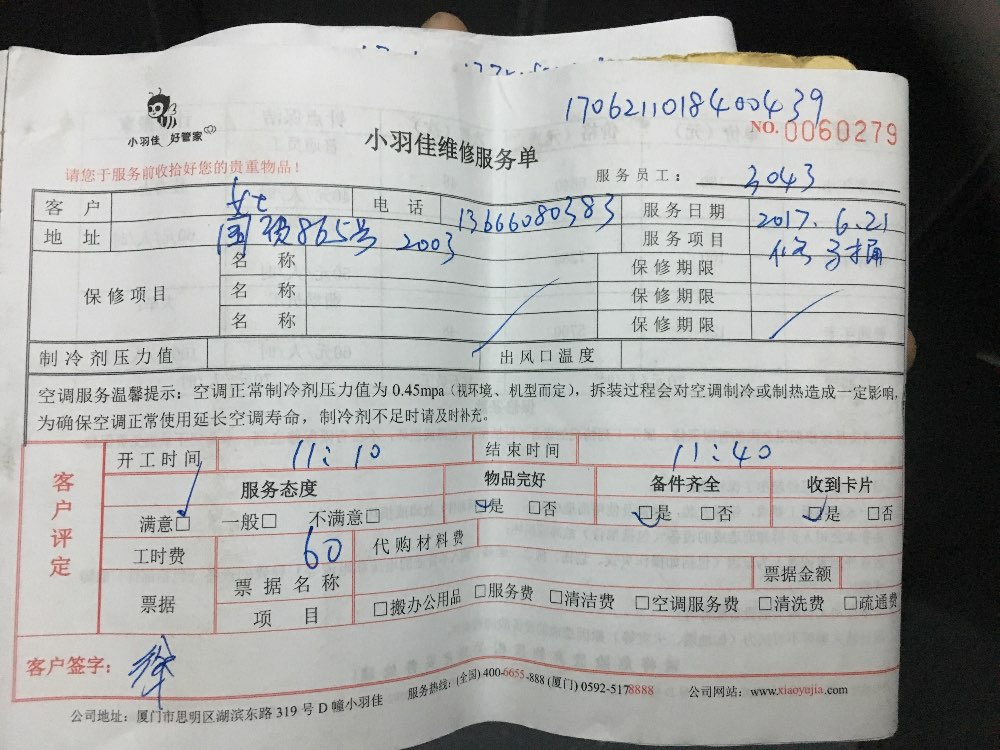 170621101840​0439
小羽佳 好管家
小羽佳维修服务单
NO. 0060279
请您于服务前收拾好您的贵重物品！
服务员工： 3043
客户 女士 电话 13666080383 服务日期 2017.6.21
地址 865号 2003 服务项目 修马桶
保修项目 名称 保修期限
名称 保修期限
名称 保修期限
制冷剂压力值 出风口温度
空调服务温馨提示：空调正常制冷剂压力值为 0.45mpa（视环境、机型而定），拆装过程会对空调制冷或制热造成一定影响，
为确保空调正常使用延长空调寿命，制冷剂不足时请及时补充。
客户评定
开工时间 11:10 结束时间 11:40
服务态度 物品完好 备件齐全 收到卡片
满意□ 一般□ 不满意□ □是 □否 □是 □否 □是 □否
工时费 60 代购材料费
票据 票据名称 票据金额
项目 □搬办公用品 □服务费 □清洁费 □空调服务费 □清洗费 □疏通费
客户签字：
公司地址：厦门市思明区湖滨东路 319 号 D 幢小羽佳 服务热线：(全国) 400-6655-888 (厦门) 0592-5178888 公司网站：www.xiaoyujia.com